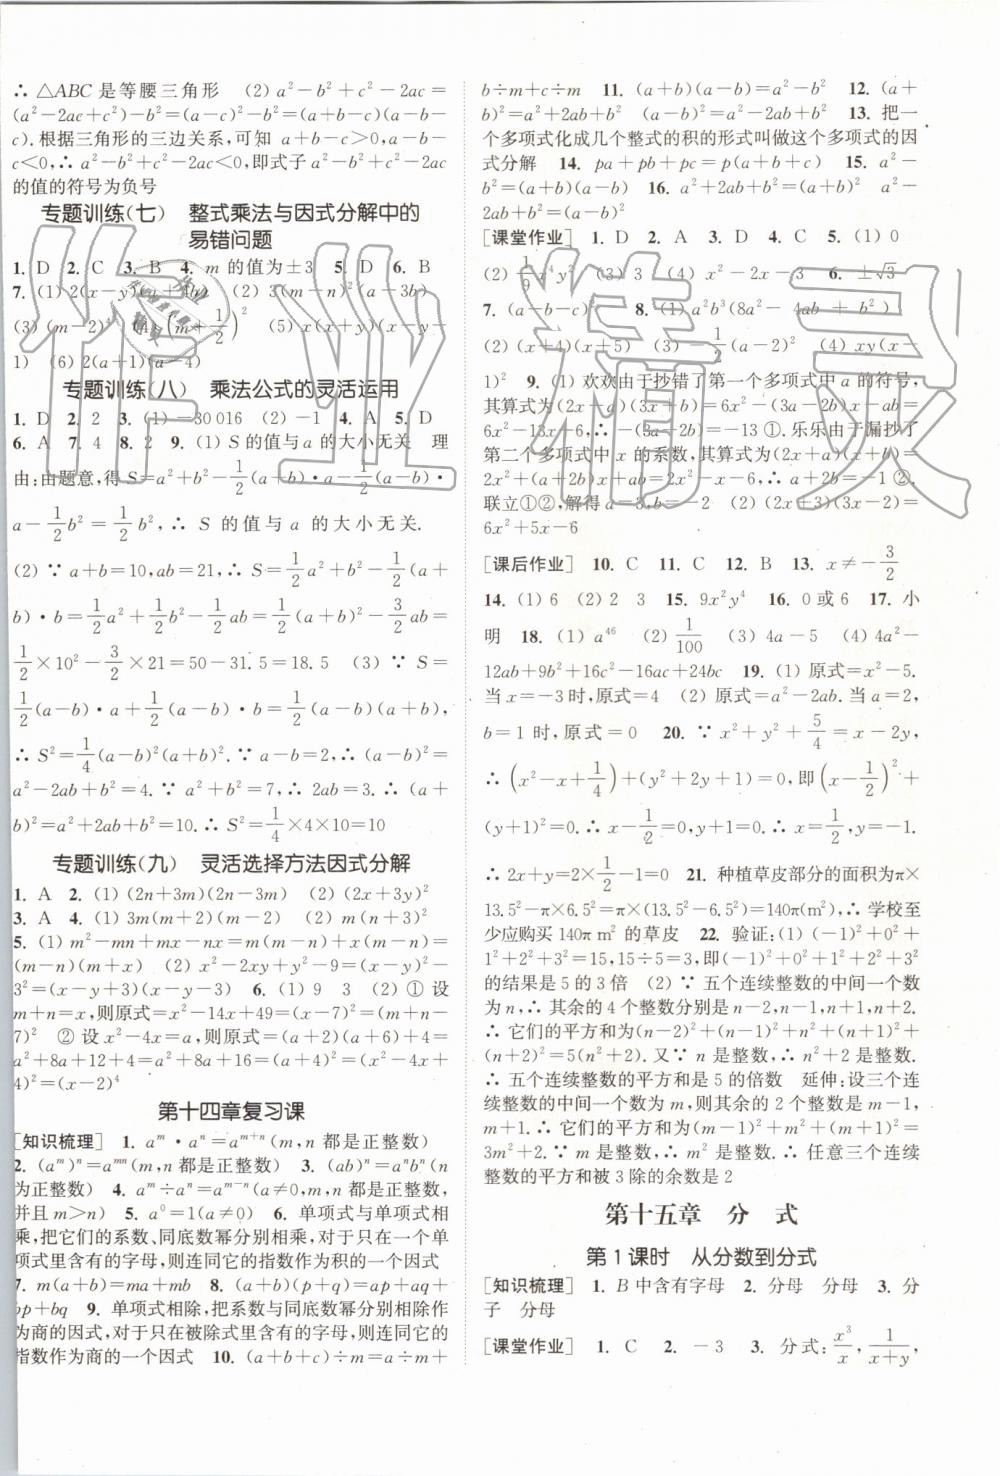 ∴ △ABC 是等腰三角形 (2) a²-b²+c²-2ac=
(a²-2ac+c²)-b²=(a-c)²-b²=(a+b-c)(a-b-
c).根据三角形的三边关系,可知 a+b-c>0,a-b-
c<0,∴ a²-b²+c²-2ac<0,即式子 a²-b²+c²-2ac
的值的符号为负号
专题训练(七) 整式乘法与因式分解中的
易错问题
1. D 2. C 3. B 4. m 的值为±3 5. D 6. B
7. (1) 2(x-y)(a+4b) (2) 3(m-n)²(a-3b)
(3) (m-2)⁴ (4) (m+1/2)² (5) x(x+y)(x-y-
1) (6) 2(a+1)(a-4)
专题训练(八) 乘法公式的灵活运用
1. D 2. 2 3. (1) -30 016 (2) -1 4. A 5. D
6. A 7. 4 8. 2 9. (1) S的值与a的大小无关 理
由:由题意,得 S=a²+b²-1/2(a+b)·a-1/2(a-b)·
a-1/2b²=1/2b²,∴ S 的值与 a 的大小无关.
(2) ∵ a+b=10,ab=21,∴ S=1/2a²+b²-1/2(a+
b)·b=1/2a²+1/2b²-1/2ab=1/2(a+b)²-3/2ab=
1/2×10²-3/2×21=50-31.5=18.5 (3) ∵ S=
1/2(a-b)·a+1/2(a-b)·b=1/2(a-b)(a+b),
∴ S²=1/4(a-b)²(a+b)². ∵ a-b=2,∴ (a-b)²=
a²-2ab+b²=4. ∵ a²+b²=7,∴ 2ab=3. ∴ (a+
b)²=a²+2ab+b²=10. ∴ S²=1/4×4×10=10
专题训练(九) 灵活选择方法因式分解
1. A 2. (1) (2n+3m)(2n-3m) (2) (2x+3y)²
3. A 4. (1) 3m(m+2)(m-2) (2) m(n+3)²
5. (1) m²-mn+mx-nx=m(m-n)+x(m-n)=
(m-n)(m+x) (2) x²-2xy+y²-9=(x-y)²-
3²=(x-y+3)(x-y-3) 6. (1) 9 3 (2) ① 设
m+n=x,则原式=x²-14x+49=(x-7)²=(m+n-
7)² ② 设 x²-4x=a,则原式=(a+2)(a+6)+4=
a²+8a+12+4=a²+8a+16=(a+4)²=(x²-4x+
4)²=(x-2)⁴
第十四章复习课
[知识梳理] 1. aᵐ·aⁿ=aᵐ⁺ⁿ(m,n 都是正整数)
2. (aᵐ)ⁿ=aᵐⁿ(m,n 都是正整数) 3. (ab)ⁿ=aⁿbⁿ(n
为正整数) 4. aᵐ÷aⁿ=aᵐ⁻ⁿ(a≠0,m,n 都是正整数,
并且 m>n) 5. a⁰=1(a≠0) 6. 单项式与单项式相
乘,把它们的系数、同底数幂分别相乘,对于只在一个单项
式里含有的字母,则连同它的指数作为积的一个因式
7. m(a+b)=ma+mb 8. (a+b)(p+q)=ap+aq+
bp+bq 9. 单项式相除,把系数与同底数幂分别相除作
为商的因式,对于只在被除式里含有的字母,则连同它的
指数作为商的一个因式 10. (a+b+c)÷m=a÷m+
b÷m+c÷m 11. (a+b)(a-b)=a²-b² 12. (a+
b)²=a²+2ab+b² (a-b)²=a²-2ab+b² 13. 把一
个多项式化成几个整式的积的形式叫做这个多项式的因
式分解 14. pa+pb+pc=p(a+b+c) 15. a²-
b²=(a+b)(a-b) 16. a²+2ab+b²=(a+b)² a²-
2ab+b²=(a-b)²
[课堂作业] 1. D 2. A 3. D 4. C 5. (1) 0
(2) 1/9x⁴y² (3) 3 (4) x²-2x-3 6. ±√3
7. (a-b-c)² 8. (1) a²b³(8a²-4ab+b²)
(2) (x+4)(x+5) (3) -1/2(a-2)² (4) xy(x-
1)² 9. (1) 欢欢由于抄错了第一个多项式中 a 的符号,
其算式为(2x-a)(3x+b)=6x²-(3a-2b)x-ab=
6x²-13x+6,∴ -(3a-2b)=-13 ①.乐乐由于漏抄了
第二个多项式中 x 的系数,其算式为(2x+a)(x+b)=
2x²+(a+2b)x+ab=2x²-x-6,∴ a+2b=-1 ②.
联立①②,解得 a=3,b=-2 (2) (2x+3)(3x-2)=
6x²+5x-6
[课后作业] 10. C 11. C 12. B 13. x≠-3/2
14. (1) 6 (2) 2 3 15. 9x²y⁴ 16. 0 或 6 17. 小
明 18. (1) a⁴⁶ (2) 1/100 (3) 4a-5 (4) 4a²-
12ab+9b²+16c²-16ac+24bc 19. (1) 原式=x²-5.
当 x=-3 时,原式=4 (2) 原式=a²-2ab.当 a=2,
b=1 时,原式=0 20. ∵ x²+y²+5/4=x-2y,
∴ (x²-x+1/4)+(y²+2y+1)=0,即(x-1/2)²+
(y+1)²=0. ∴ x-1/2=0,y+1=0. ∴ x=1/2,y=-1.
∴ 2x+y=2×1/2-1=0 21. 种植草皮部分的面积为π×
13.5²-π×6.5²=π×(13.5²-6.5²)=140π(m²),∴ 学校至
少应购买 140π m² 的草皮 22. 验证:(1) (-1)²+0²+
1²+2²+3²=15,15÷5=3,即(-1)²+0²+1²+2²+3²
的结果是 5 的 3 倍 (2) ∵ 五个连续整数的中间一个数
为 n,∴ 其余的 4 个整数分别是 n-2,n-1,n+1,n+2.
∴ 它们的平方和为(n-2)²+(n-1)²+n²+(n+1)²+
(n+2)²=5(n²+2).又∵ n 是整数,∴ n²+2 是整数.
∴ 五个连续整数的平方和是 5 的倍数 延伸:设三个连
续整数的中间一个数为 m,则其余的 2 个整数是 m-1,
m+1. ∴ 它们的平方和为(m-1)²+m²+(m+1)²=
3m²+2. ∵ m 是整数,∴ m² 是整数. ∴ 任意三个连续
整数的平方和被 3 除的余数是 2
第十五章 分 式
第 1 课时 从分数到分式
[知识梳理] 1. B 中含有字母 2. 分母 分母 3. 分
子 分母
[课堂作业] 1. C 2. -3 3. 分式:x³/x,1/(x+y),
作业精灵